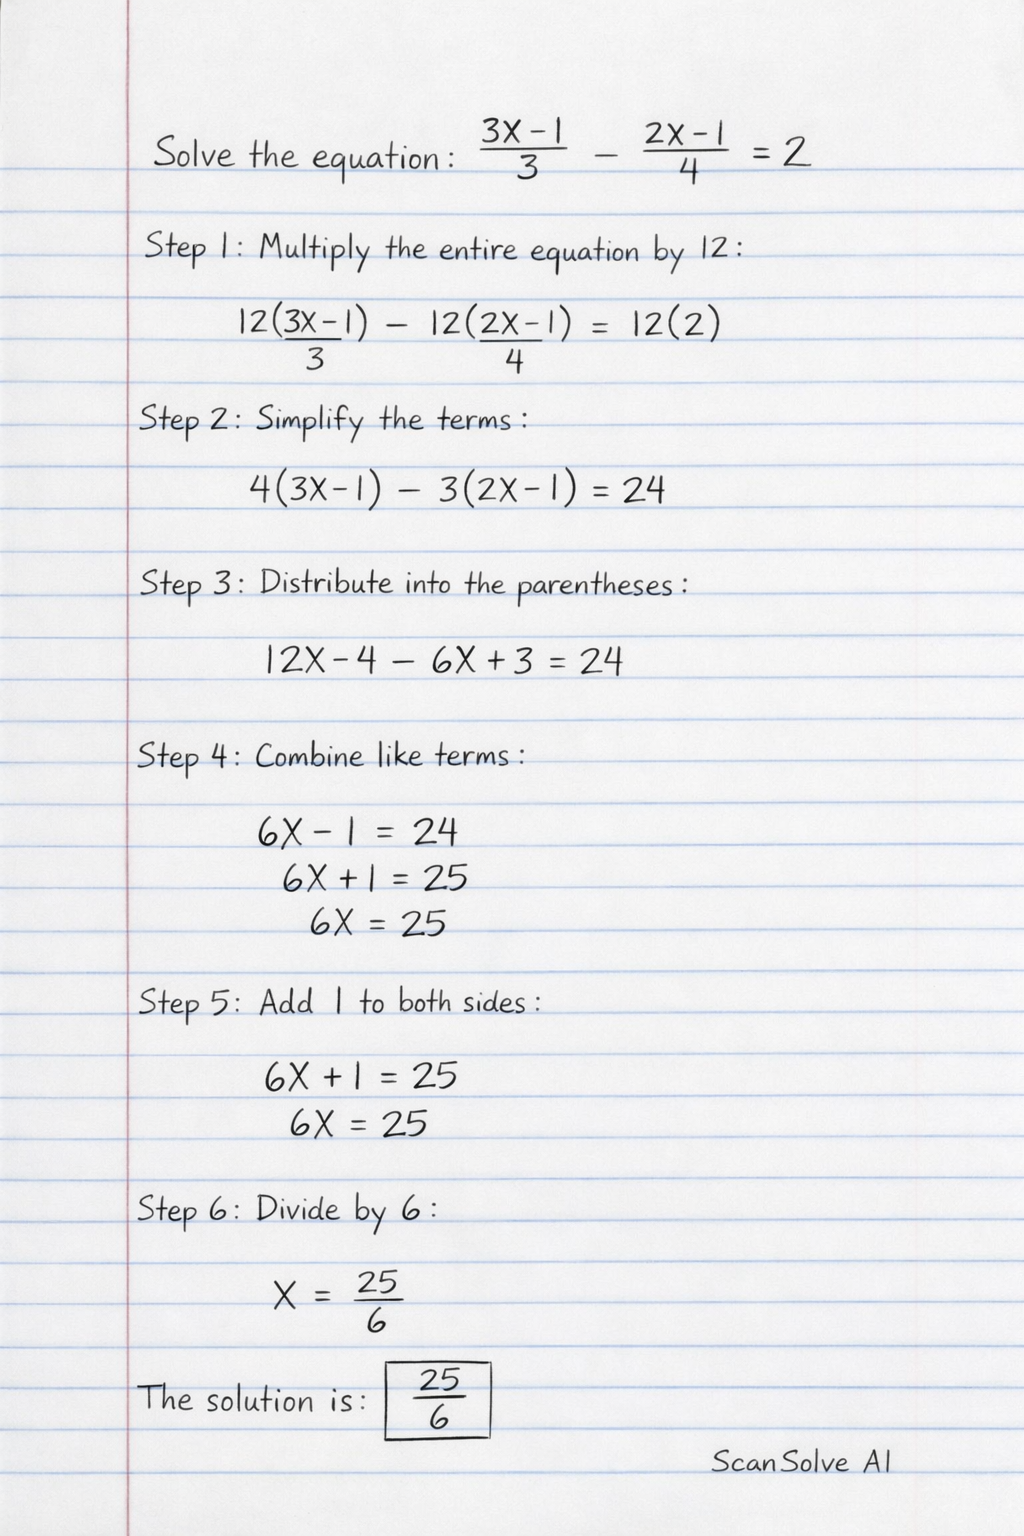 Solve the equation: (3X-1)/3 - (2X-1)/4 = 2
Step 1: Multiply the entire equation by 12:
12(3X-1)/3 - 12(2X-1)/4 = 12(2)
Step 2: Simplify the terms:
4(3X-1) - 3(2X-1) = 24
Step 3: Distribute into the parentheses:
12X-4 - 6X+3 = 24
Step 4: Combine like terms:
6X-1 = 24
6X+1 = 25
6X = 25
Step 5: Add 1 to both sides:
6X+1 = 25
6X = 25
Step 6: Divide by 6:
X = 25/6
The solution is: 25/6
ScanSolve AI